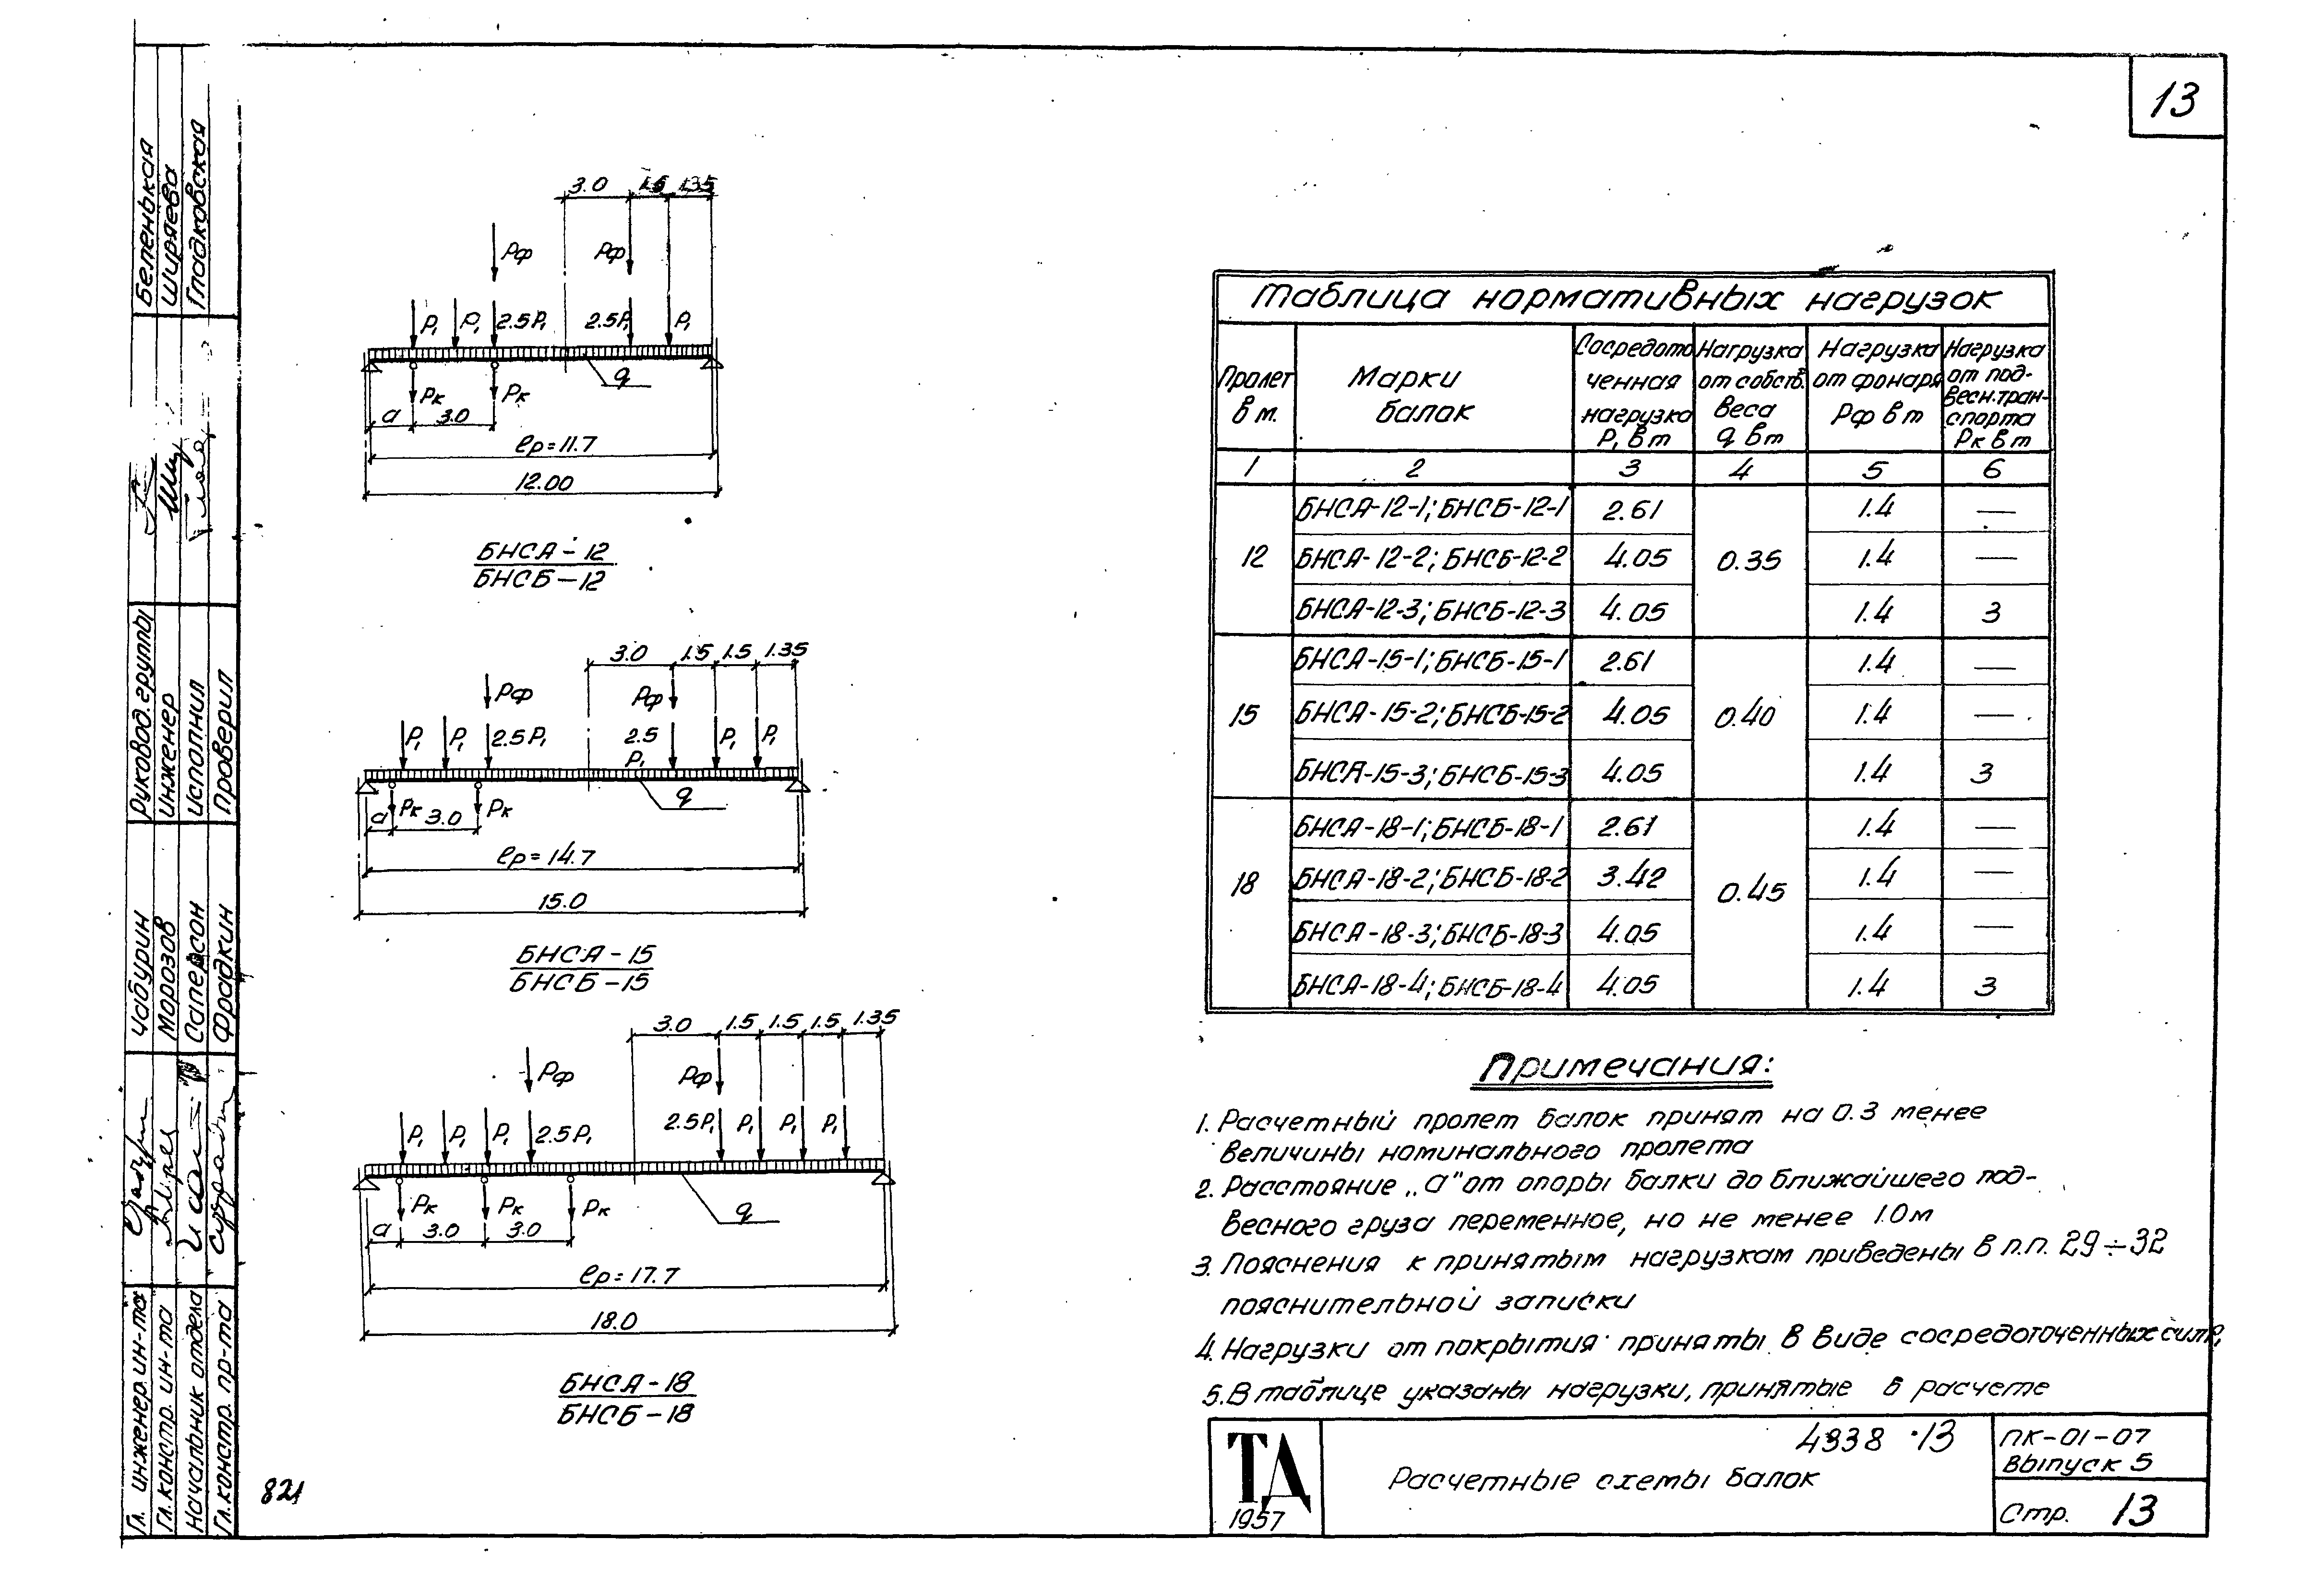 13
3.0 1.5 1.35
Рф Рф
Р₁ Р₁ 2.5Р₁ 2.5Р₁ Р₁
q
Рк Рк
а 3.0
ℓр=11.7
12.00
БНСА-12
БНСБ-12
3.0 1.5 1.5 1.35
Рф Рф
Р₁ Р₁ 2.5Р₁ 2.5 Р₁ Р₁ Р₁
q
Рк Рк
а 3.0
ℓр=14.7
15.0
БНСА-15
БНСБ-15
3.0 1.5 1.5 1.5 1.35
Рф Рф
Р₁ Р₁ Р₁ 2.5Р₁ 2.5Р₁ Р₁ Р₁ Р₁
Рк Рк Рк q
а 3.0 3.0
ℓр=17.7
18.0
БНСА-18
БНСБ-18
821
Таблица нормативных нагрузок
Пролет в м.
Марки балок
Сосредоточенная нагрузка Р₁ в т
Нагрузка от собств. веса q в т
Нагрузка от фонаря Рф в т
Нагрузка от подвесн. транспорта Рк в т
1 2 3 4 5 6
12 0.35
БНСА-12-1; БНСБ-12-1 2.61 1.4 —
БНСА-12-2; БНСБ-12-2 4.05 1.4 —
БНСА-12-3; БНСБ-12-3 4.05 1.4 3
15 0.40
БНСА-15-1; БНСБ-15-1 2.61 1.4 —
БНСА-15-2; БНСБ-15-2 4.05 1.4 —
БНСА-15-3; БНСБ-15-3 4.05 1.4 3
18 0.45
БНСА-18-1; БНСБ-18-1 2.61 1.4 —
БНСА-18-2; БНСБ-18-2 3.42 1.4 —
БНСА-18-3; БНСБ-18-3 4.05 1.4 —
БНСА-18-4; БНСБ-18-4 4.05 1.4 3
Примечания:
1. Расчетный пролет балок принят на 0.3 менее
величины номинального пролета
2. Расстояние „а" от опоры балки до ближайшего под-
весного груза переменное, но не менее 1.0 м
3. Пояснения к принятым нагрузкам приведены в п.п. 29÷32
пояснительной записки
4. Нагрузки от покрытия приняты в виде сосредоточенных сил Р₁
5. В таблице указаны нагрузки, принятые в расчете
ТА
1957
4338 · 13
Расчетные схемы балок
ПК-01-07
Выпуск 5
Стр. 13
Гл. инженер ин-та Чабурин Руковод. группы Беленькая
Гл. констр. ин-та Морозов Инженер Ширяева
Начальник отдела Саперсон Исполнил Гладковская
Гл. констр. пр-та Фрадкин Проверил